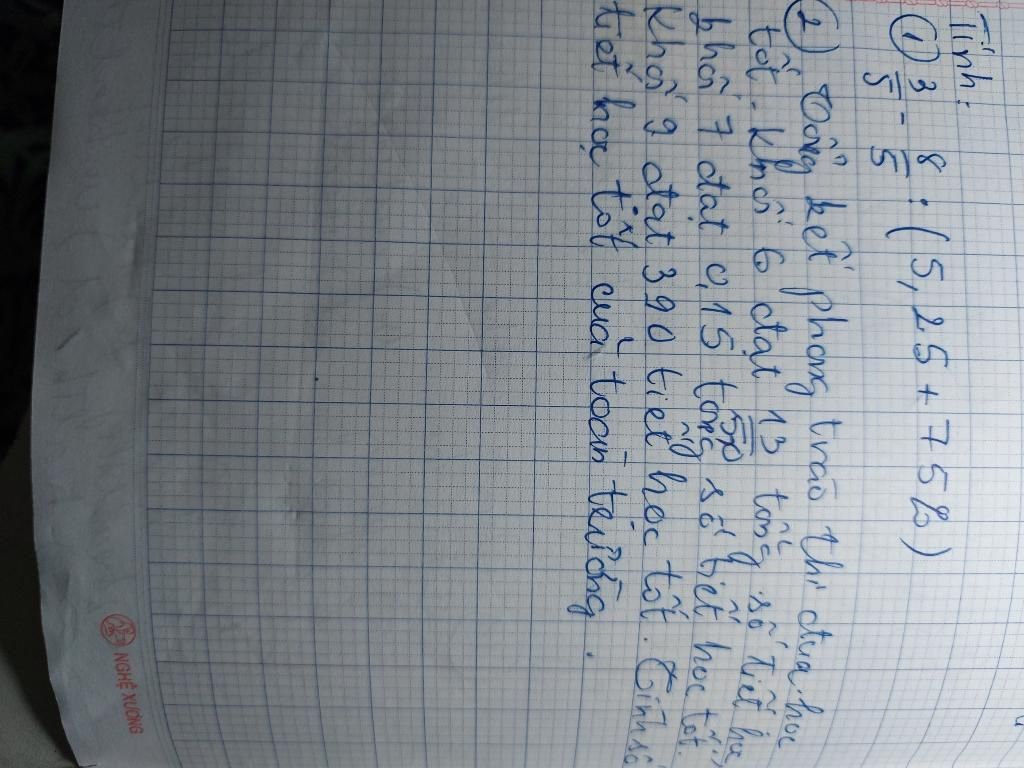 Tính:
① 3/5 - 8/5 : (5,25 + 75%)
② Tổng kết phong trào thi đua học
tốt. Khối 6 đạt 13/50 tổng số tiết học,
khối 7 đạt 0,15 tổng số tiết học tốt.
Khối 9 đạt 390 tiết học tốt. Tính số
tiết học tốt của toàn trường.
NGHÊ XUONG